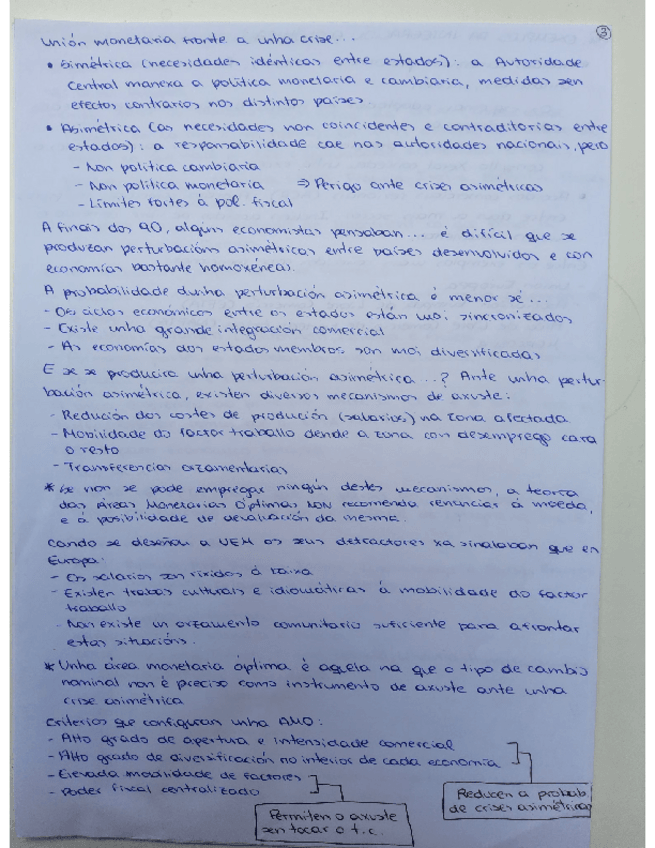 3
Unión monetaria fronte a unha crise...
• Simétrica (necesidades idénticas entre estados): a Autoridade
Central manexa a política monetaria e cambiaria, medidas sen
efectos contrarios nos distintos países.
• Asimétrica (as necesidades non coincidentes e contraditorias entre
estados): a responsabilidade cae nas autoridades nacionais, pero
- Non política cambiaria
- Non política monetaria ⇒ Perigo ante crises asimétricas
- Límites fortes á pol. fiscal
A finais dos 90, algúns economistas pensaban... é difícil que se
produzan perturbacións asimétricas entre países desenvolvidos e con
economías bastante homoxéneas.
A probabilidade dunha perturbación asimétrica é menor se...
- Os ciclos económicos entre os estados están moi sincronizados
- Existe unha grande integración comercial
- As economías dos estados membros son moi diversificadas
E se se producira unha perturbación asimétrica...? Ante unha pertur-
bación asimétrica, existen diversos mecanismos de axuste:
- Redución dos costes de produción (salarios) na zona afectada
- Mobilidade do factor traballo dende a zona con desemprego cara
o resto
- Transferencias orzamentarias
* Se non se pode empregar ningún destes mecanismos, a teoría
das Áreas Monetarias Óptimas NON recomenda renunciar á moeda,
e á posibilidade de devaluación da mesma.
Cando se deseñou a UEM os seus detractores xa sinalaban que en
Europa:
- Os salarios son ríxidos á baixa
- Existen trabas culturais e idiomáticas á mobilidade do factor
traballo
- Non existe un orzamento comunitario suficiente para afrontar
estas situacións.
* Unha área monetaria óptima é aquela na que o tipo de cambio
nominal non é preciso como instrumento de axuste ante unha
crise asimétrica
Criterios que configuran unha AMO:
- Alto grado de apertura e intensidade comercial
- Alto grado de diversificación no interior de cada economía
- Elevada mobilidade de factores
- Poder fiscal centralizado
Reducen a probab
de crises asimétricas
Permiten o axuste
sen tocar o t.c.